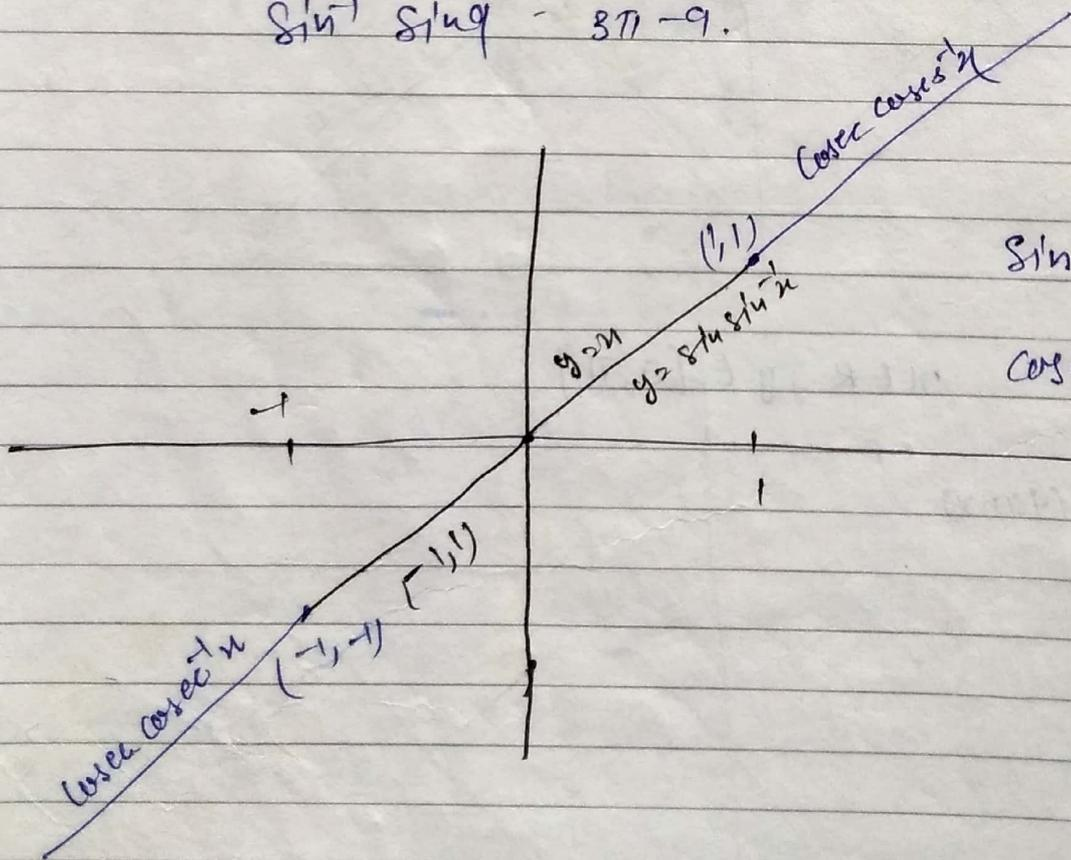 Sin⁻¹ Sin9 - 3π - 9.
Cosec Cosec⁻¹x
(1, 1)
Sin
y=x
y= sin sin⁻¹x
Cos
-1
1
[-1, 1)
(-1, -1)
Cosec Cosec⁻¹x